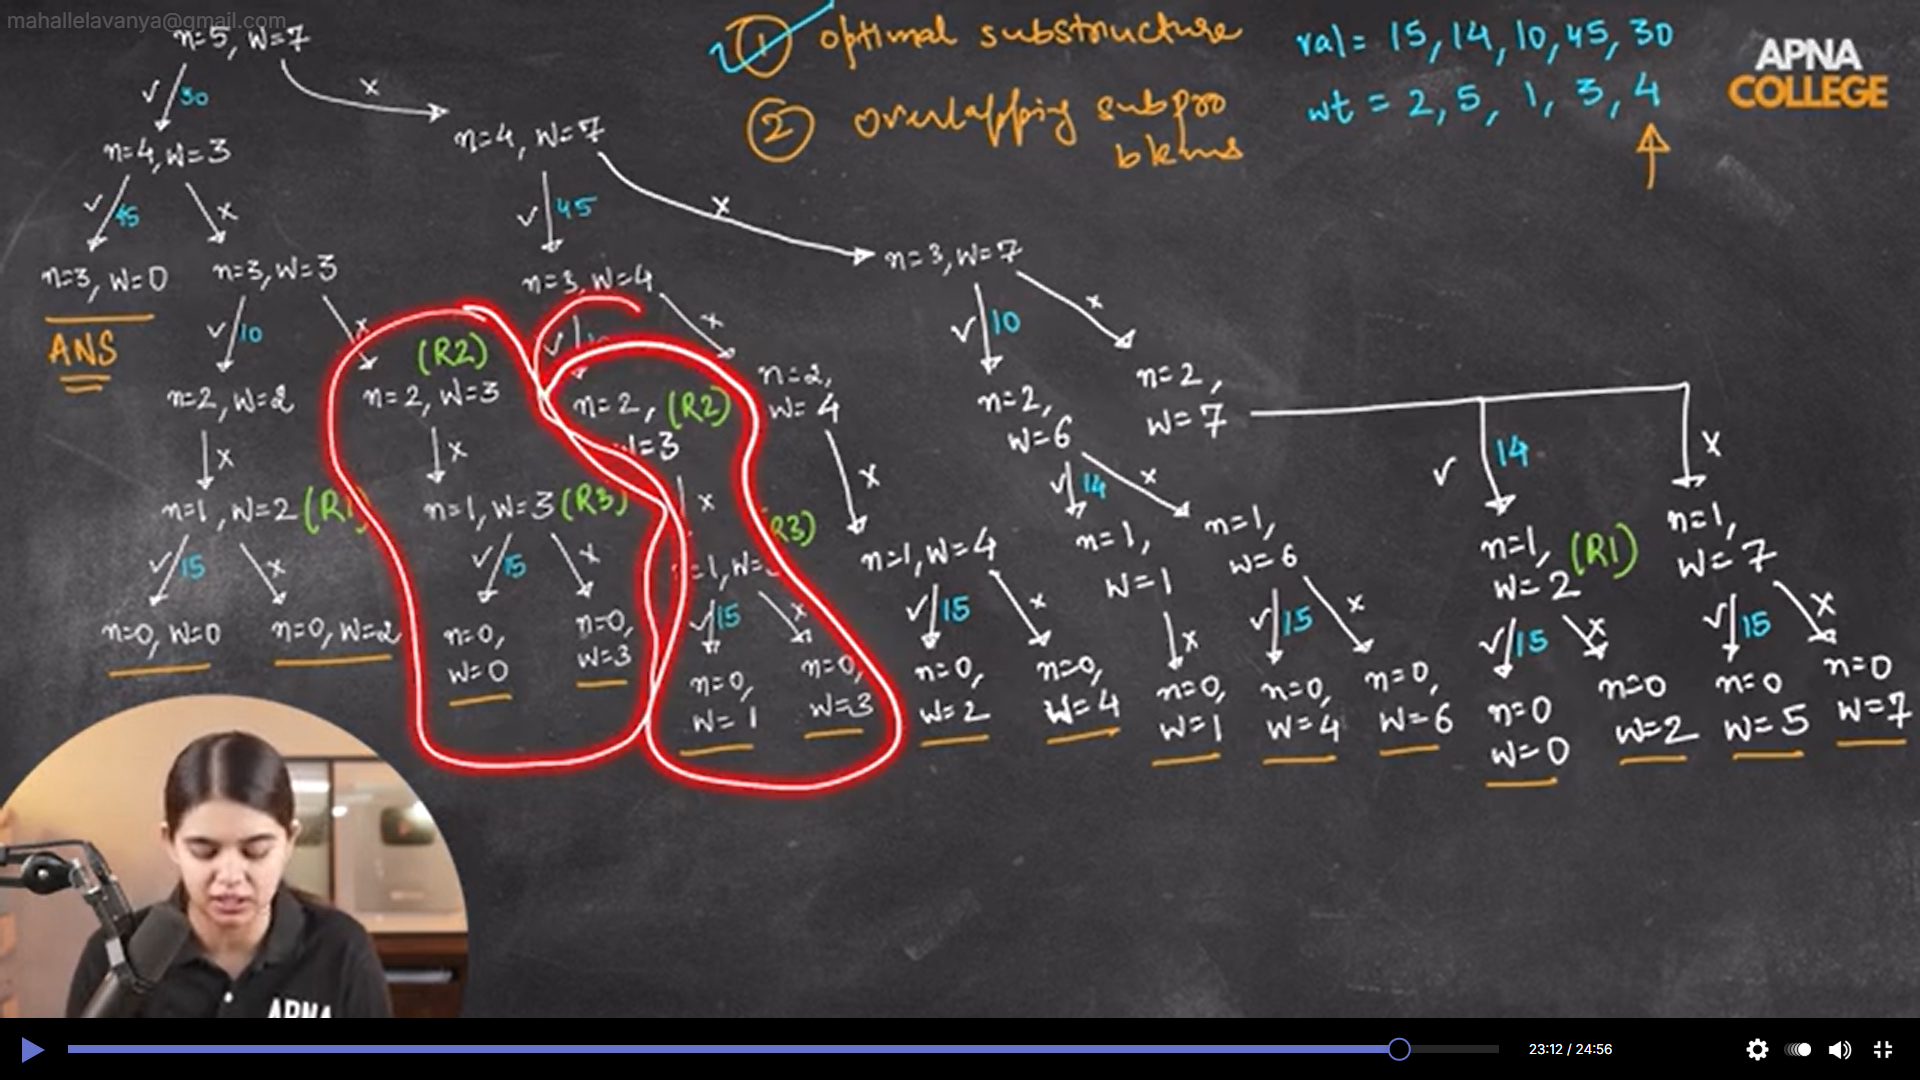 mahallelavanya@gmail.com
n=5, W=7
① optimal substructure
② overlapping subpro
blems
val = 15, 14, 10, 45, 30
wt = 2, 5, 1, 3, 4
APNA
COLLEGE
✓ 30
x
n=4, W=3
n=4, W=7
✓ 45
x
✓ 45
x
n=3, W=0
n=3, W=3
n=3, W=4
n=3, W=7
ANS
✓ 10
x
✓
x
✓ 10
x
n=2, W=2
(R2)
n=2, W=3
n=2, (R2)
W=3
n=2,
W=4
n=2,
W=6
n=2,
W=7
x
x
x
x
✓ 14
x
✓ 14
x
n=1, W=2 (R1
n=1, W=3 (R3)
R3)
=1, W=
n=1, W=4
n=1,
W=1
n=1,
W=6
n=1, (R1)
W=2
n=1,
W=7
✓ 15
x
✓ 15
x
✓ 15
x
✓ 15
x
x
✓ 15
x
✓ 15
x
✓ 15
x
n=0, W=0
n=0, W=2
n=0,
W=0
n=0,
W=3
n=0,
W=1
n=0,
W=3
n=0,
W=2
n=0,
W=4
n=0,
W=1
n=0,
W=4
n=0,
W=6
n=0
W=0
n=0
W=2
n=0
W=5
n=0
W=7
APNA
23:12 / 24:56